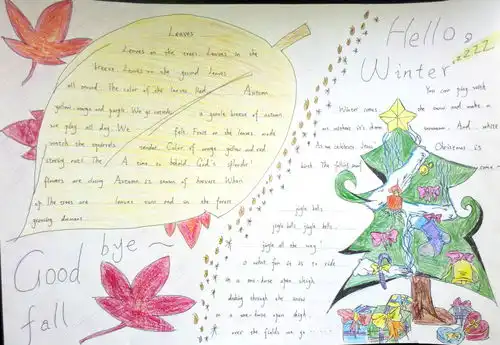 Leaves
Leaves on the trees. Leaves in the
breeze. Leaves on the ground. Leaves
all around. The color of the leaves. Red
Autumn
yellow orange and purple. We go outside
a gentle breeze of autumn.
we play all day. We
felt. Frost on the leaves made
watch the squirrels
Color of orange yellow and red
A time to behold God's splendor
flowers are dying Autumn is season of harvest. When
of the trees are
leaves turn red in the forest
growing
Good bye ~
fall
Hello,
Winter
zzzz
You can play with
Winter comes
the snow and make a
it's done
snowman. And
white
As we celebrate Jesus'
Christmas is
birth. The
jingle bells
jingle bells, jingle bells
jingle all the way!
o what fun it is to ride
in a one-horse open sleigh
dashing through the snow
in a one-horse open sleigh
over the fields we go